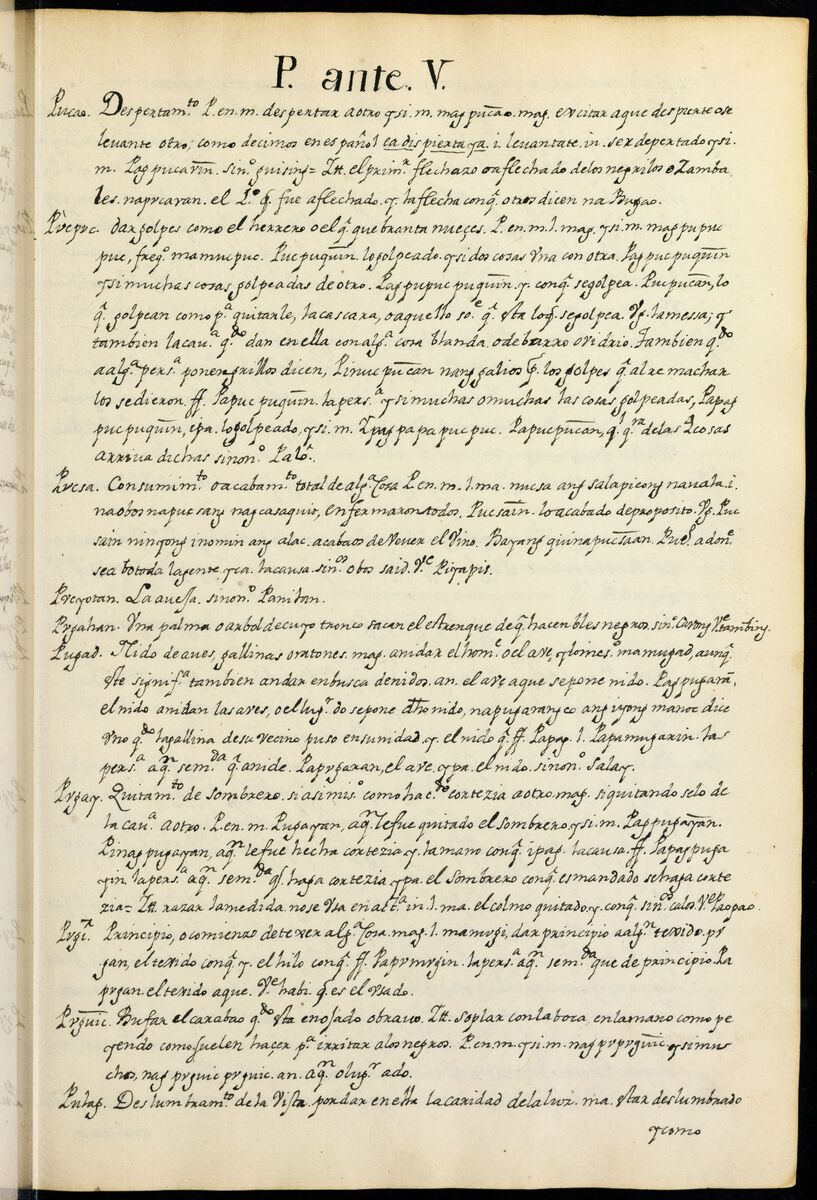 P. ante. V.
Pucao. Despertam.to P. en. m. despertar a otro y si. m. mag pucao. mag. excitar a que despierte o se
levante otro; como decimos en español ea dispierta ya. i. levantate. in. ser depertado y si.
m. Pag pucavin. sin.o guising= Itt. el prim.r flechazo o a flechado de los negrilos o Zamba
les. napucavan. el 1.o q. fue aflechado. y. la flecha con q. otros dicen na Bugao.
Pucpuc. dar golpes como el herrero o el q. que branta nueçes. P. en. m. l. mag. y si. m. mag pu puc
puc, freq.o mamucpuc. Puc puquin. lo golpeado. y si dos cosas vna con otra. Pag puc puquin
y si muchas cosas golpeadas de otro. Pag pupuc puquin. y. con q. se golpea. Puc pucan, lo
q. golpean como p.a quitarle, la cascara, o aquello so.e q. esta lo q. se golpea. Vg. la messa; y
tambien la cau.a q.do dan en ella con alg.a cosa blanda, o de barro o vidrio. Tambien q.do
a alg.a pers.a ponen grillos dicen, Pinuc pucan nang galios q. los golpes q. al re machar
los se dieron. ff. Papuc puquin. la pers.a y si muchas o muchas las cosas golpeadas, Papag
puc puquin, ipa. lo golpeado, y si. m. Ipag pa pa puc puc. Papucpucan, q. l q.ra de las 4 cosas
arriva dichas sinon.o Palo.
Pucsa. Consumim.to o acabam.to total de alg.a Cosa P. en. m. l. ma. nucsa ang sala pi cong na vala. i.
na obos na puc sa ng nagcasaquit, enfermaron todos. Pucsain. lo acabado de proposito. Vg. Puc
sain nin yong inomin ang alac. acabaos de vever el Vino. Bayang quina pucsaan. Pueb.o a don.e
se a botoda la gente. y ca. la causa. sin.os obos said. V.e Piyapis.
Pucyotan. La avessa. sinon.o Panitan.
Pugahan. Vna palma o arbol de cuyo tronco sacan el estrenque de q. hacen bles negros. sin.o Cavong V.e tambing.
Pugad. Nido de aves, gallinas o ratones. mag. anidar el hom.e o el ave, y lo mes.o mamugad, aunq.
este signif.a tambien andar en busca de nidos. an. el ave a que se pone nido. Pag pugaran,
el nido anidan las aves, o el lug.r do se pone dho nido, na pugaran co ang iyong manoc dice
vno q.do la gallina de su vecino puso en su nidad. y. el nido q. ff. Papag. l. Papamugarin. las
pers.a aq.n sem.da q. anide. Papugaran, el ave. y pa. el nido. sinon.o Salay.
Pugay. Quitam.to de sombrero. si asimis.o como hac.do cortezia a otro. mag. si quitando selo de
la cau.a a otro. P. en. m. Pugayan, aq.n le fue quitado el sombrero, y si. m. Pag pugayan.
Pinag pugayan, aq.n le fue hecha cortezia y. la mano con q. ipag. la causa. ff. Papag puga
yin. la pers.a aq.n sem.da q. haga cortezia y pa. el sombrero con q. es mandado se haga corte
zia= Itt. razar la medida. no se vsa en act.a in. l. ma. el colmo quitado. y. con q. sin.os calos. V.e Paopao.
Pugi. Principio, o comienzo de texer alg.a Cosa. mag. l. mamugi, dar principio a alg.n texido. pu
gan, el texido con q. y. el hilo con q. ff. Papumugin. la pers.a aq.n sem.da que de principio. Pa
pugan. el texido a que. V.e habi. q. es el vsado.
Pugnic. Bufar el carabao q.do esta enojado o bravo. Itt. soplar con la boca, en la mano como pe
yendo como suelen haçer p.a irritar a los negros. P. en. m. y si. m. nag pupugnic y si mu
chos, nag pugnic pugnic. an. aq.n o lug.r ado.
Pulag. Deslumbram.to de la Vista. por dar en ella la caridad de la luz. ma. estar deslumbrado
y como